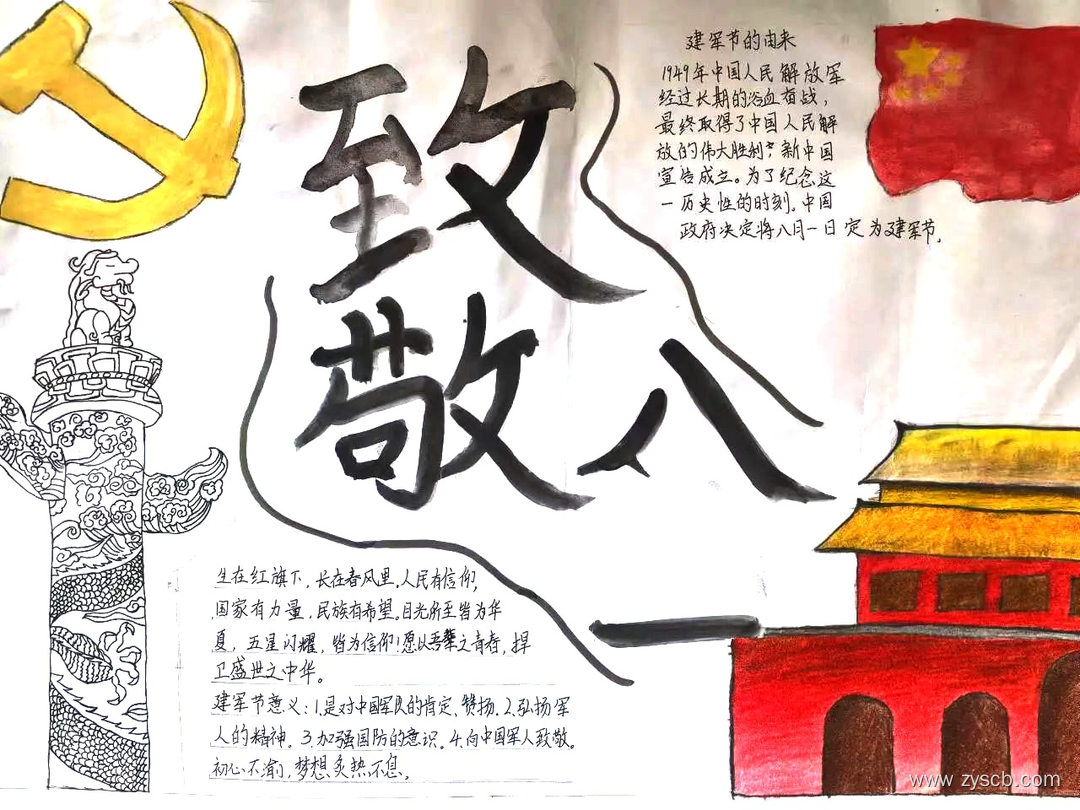 致敬八一
建军节的由来
1949年中国人民解放军
经过长期的浴血奋战，
最终取得了中国人民解
放的伟大胜利，新中国
宣告成立。为了纪念这
一历史性的时刻，中国
政府决定将八月一日定为建军节。
生在红旗下，长在春风里，人民有信仰，
国家有力量，民族有希望。目光所至皆为华
夏，五星闪耀，皆为信仰！愿以吾辈之青春，捍
卫盛世之中华。
建军节意义：1.是对中国军队的肯定、赞扬。2.弘扬军
人的精神。3.加强国防的意识。4.向中国军人致敬。
初心不渝，梦想炙热不息。
www.zyscb.com